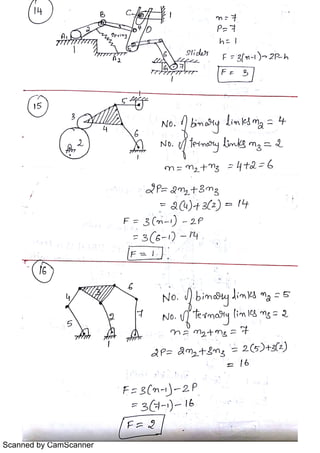 14
n = 7
P = 7
h = 1
F = 3(n-1) - 2P-h
F = 3
B
C
1
3
4
A1
A2
1
Slider
6
7
1
15
5
3
4
2
6
1
No. of binary links n2 = 4
No. of ternary links n3 = 2
n = n2 + n3 = 4+2 = 6
2P = 2n2 + 3n3
= 2(4) + 3(2) = 14
F = 3(n-1) - 2P
= 3(6-1) - 14
F = 1
16
6
4
5
2
7
1
No. of binary links n2 = 5
No. of ternary links n3 = 2
n = n2 + n3 = 7
2P = 2n2 + 3n3 = 2(5)+3(2)
= 16
F = 3(n-1) - 2P
= 3(7-1) - 16
F = 2
Scanned by CamScanner